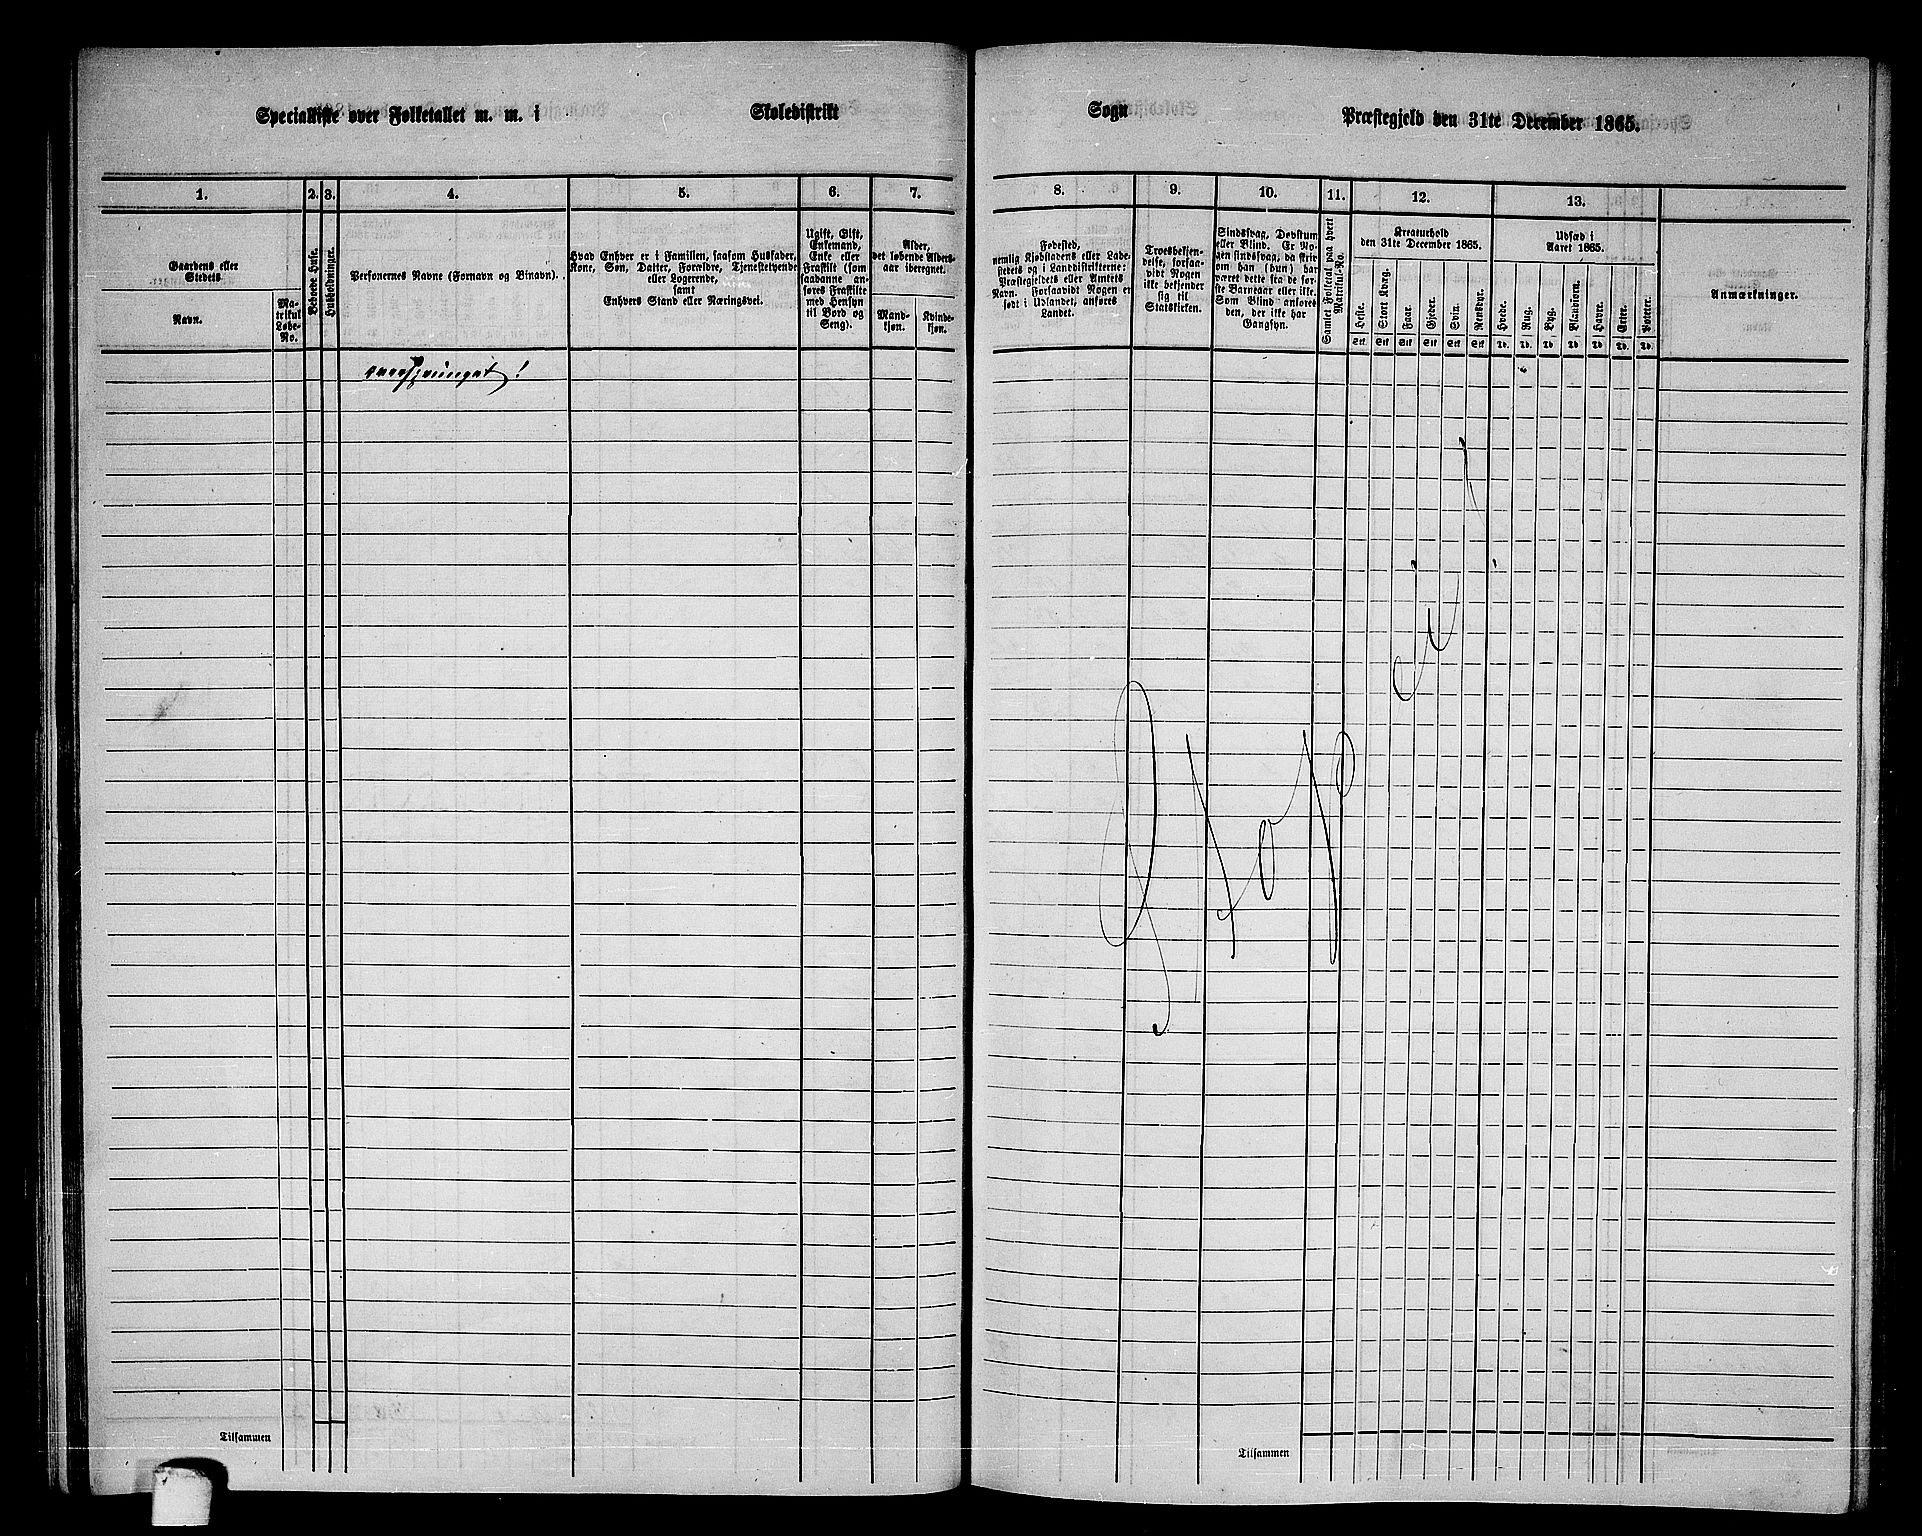 Specialliste over Folketallet m. m. i Skoledistrikt Sogn Præstegjeld den 31te December 1865.
1. 2. 3. 4. 5. 6. 7. 8. 9. 10. 11. 12. 13.
Gaardens eller
Stedets
Navn.
Ma-
trikul
Løbe-
No.
Beboede Huse.
Husholdninger.
Personernes Navne (Fornavn og Binavn).
Hvad Enhver er i Familien, saasom Husfader,
Kone, Søn, Datter, Forældre, Tjenestetyende
eller Logerende,
samt
Enhvers Stand eller Næringsvei.
Ugift, Gift,
Enkemand,
Enke eller
Fraskilt (som
saadanne an-
føres Fraskilte
med Hensyn
til Bord og
Seng).
Alder,
det løbende Alders-
aar iberegnet.
Mand-
kjøn.
Kvinde-
kjøn.
Fødested,
nemlig Kjøbstadens eller Lade-
stedets og i Landdistrikterne:
Præstegjeldets eller Amtets
Navn. Forsaavidt Nogen er
født i Udlandet, anføres
Landet.
Troesbekjen-
delse, forsaa-
vidt Nogen
ikke bekjender
sig til
Statskirken.
Sindssvag, Døvstum
eller Blind. Er No-
gen sindssvag, da skriv
om han (hun) har
været dette fra de før-
ste Barneaar eller ikke.
Som Blind anføres
den, der ikke har
Gangsyn.
Samlet Folketal paa hvert
Matrikul-No.
Kreaturhold
den 31te December 1865.
Heste.
Stort Kvæg.
Faar.
Gjeder.
Svin.
Rensdyr.
Stk. Stk. Stk. Stk. Stk. Stk.
Udsæd i
Aaret 1865.
Hvede.
Rug.
Byg.
Blandkorn.
Havre.
Erter.
Poteter.
Td. Td. Td. Td. Td. Td. Td.
Anmærkninger.
oversprunget!
Tilsammen
Tilsammen